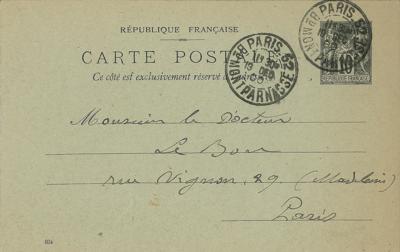 RÉPUBLIQUE FRANÇAISE
CARTE POST
Ce côté est exclusivement réservé
PARIS 52
Bd MONTPARNASSE
PARIS 52
Bd MONT
10
RÉPUBLIQUE FRANÇAISE
Monsieur le Docteur
Le Bon
rue Vignon, 29 (Madeleine)
Paris